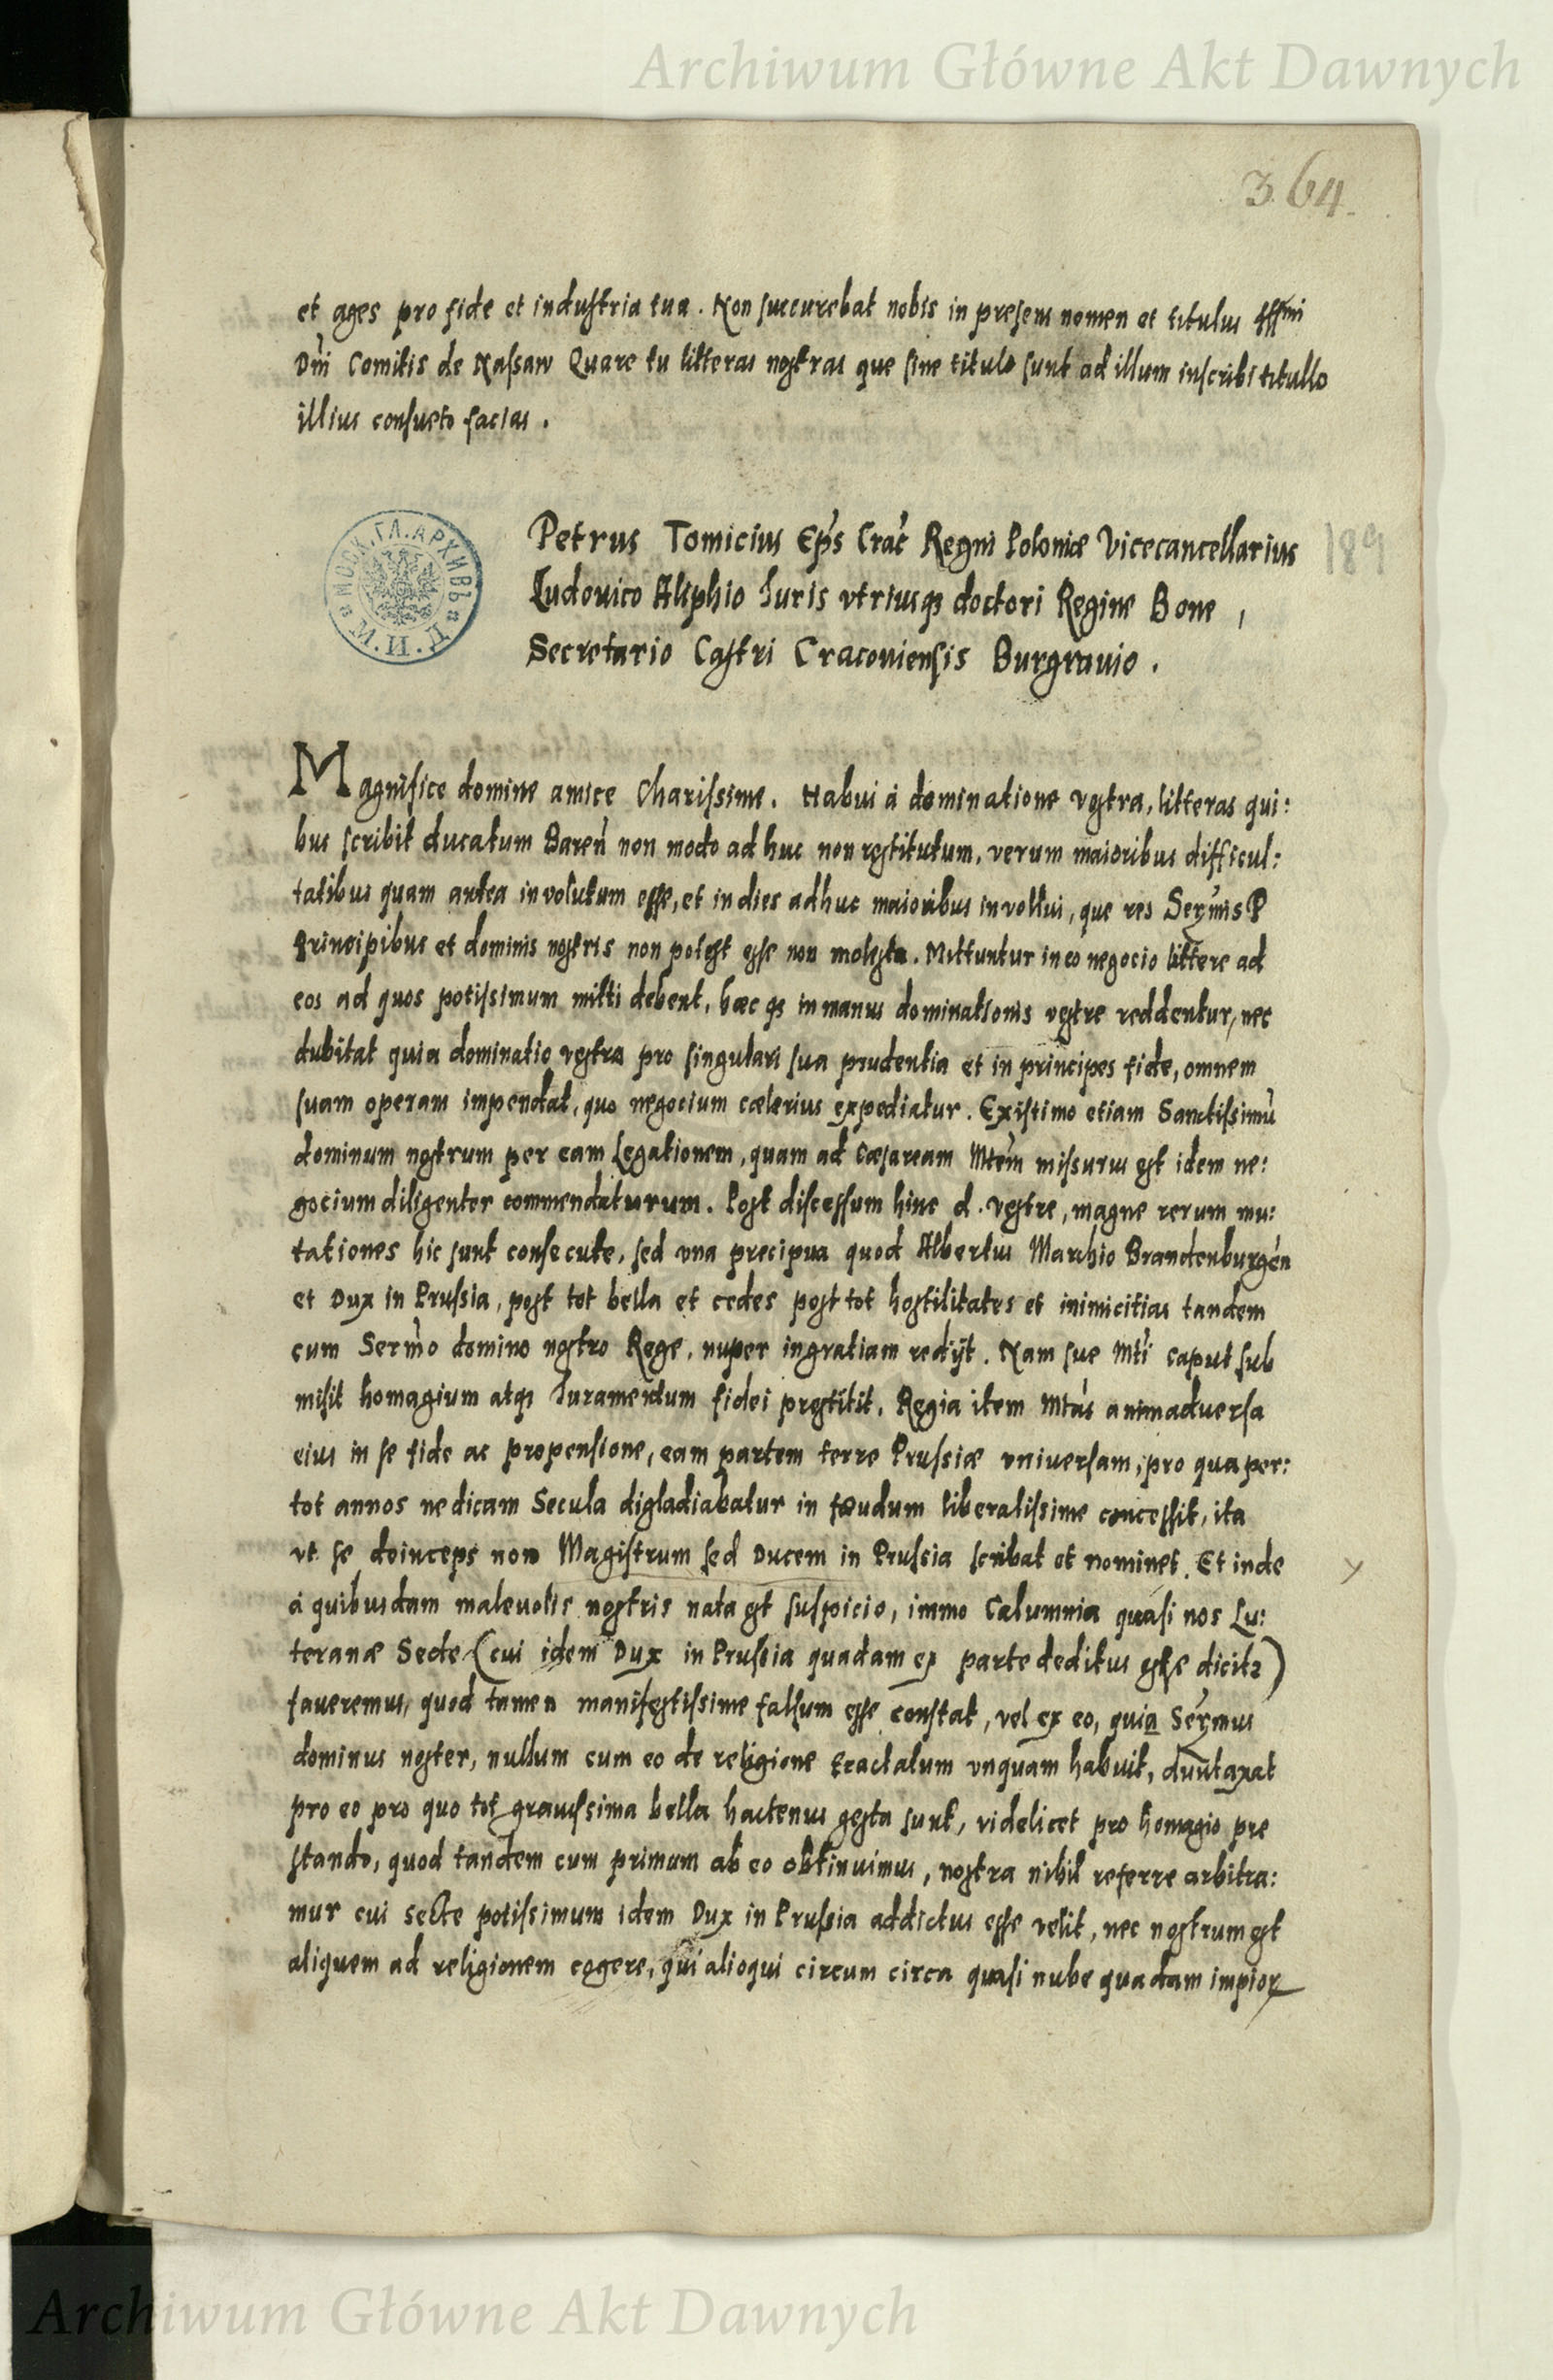 Archiwum Główne Akt Dawnych
364.
et ages pro fide et industria tua. Non succurebat nobis in presens nomen et titulus
Dni Comitis de Nassaw Quare tu litteras nostras que sine titulo sunt ad illum inscribi titullo
illius consueto facias.
Petrus Tomicius Eps Crac Regni Poloniæ Vicecancellarius
189
Ludouico Aliphio Iuris vtriusq doctori Regine Bone,
Secretario Castri Cracouiensis Burgrauio.
МОСК. ГЛ. АРХИВЪ
М. И. Д.
Magnifice domine amice Charissime. Habui à dominatione vestra, litteras qui:
bus scribit ducatum Baren non modo ad huc non restitutum, verum maioribus difficul:
tatibus quam antea involutum esse, et in dies adhuc maioribus involui, que res Sermis P
Principibus et dominis nostris non potest esse non molesta. Mittuntur in eo negocio littere ad
eos ad quos potissimum mitti debent, hæc qs in manus dominationis vestre reddentur, nec
dubitat quia dominatio vestra pro singulari sua prudentia et in principes fide, omnem
suam operam impendat, quo negocium cælerius expediatur. Existimo etiam Sanctissimũ
dominum nostrum per eam Legationem, quam ad Cæsaream Mtem missurus est idem ne:
gocium diligenter commendaturum. Post discessum hinc d. vestre, magne rerum mu:
tationes hic sunt consecute, sed vna precipua quod Albertus Marchio Brandenburgen
et Dux in Prussia, post tot bella et cedes post tot hostilitates et inimicitias tandem
cum Sermo domino nostro Rege, nuper in gratiam redijt. Nam sue Mti caput sub
misit homagium atqs Iuramentum fidei prestitit, Regia item Mtas animaduersa
eius in se fide ac propensione, eam partem terre Prussiæ vniuersam, pro qua per:
tot annos ne dicam Secula digladiabatur in fœudum liberalissime concessit, ita
vt se deinceps non Magistrum sed Ducem in Prussia scribat et nominet. Et inde
à quibusdam maleuolis nostris nata est suspicio, immo Calumnia quasi nos Lu:
teranæ Secte (cui idem Dux in Prussia quadam ex parte deditus esse dicitr)
faueremus, quod tamen manifestissime falsum esse constat, vel ex eo, quia Sermus
dominus noster, nullum cum eo de religione tractatum vnquam habuit, duntaxat
pro eo pro quo tot grauissima bella hactenus gesta sunt, videlicet pro homagio pre
stando, quod tandem cum primum ab eo obtinuimus, nostra nihil referre arbitra:
mur cui secte potissimum idem Dux in Prussia addictus esse velit, nec nostrum est
aliquem ad religionem cogere, qui alioqui circum circa quasi nube quadam impiorꝝ
Archiwum Główne Akt Dawnych